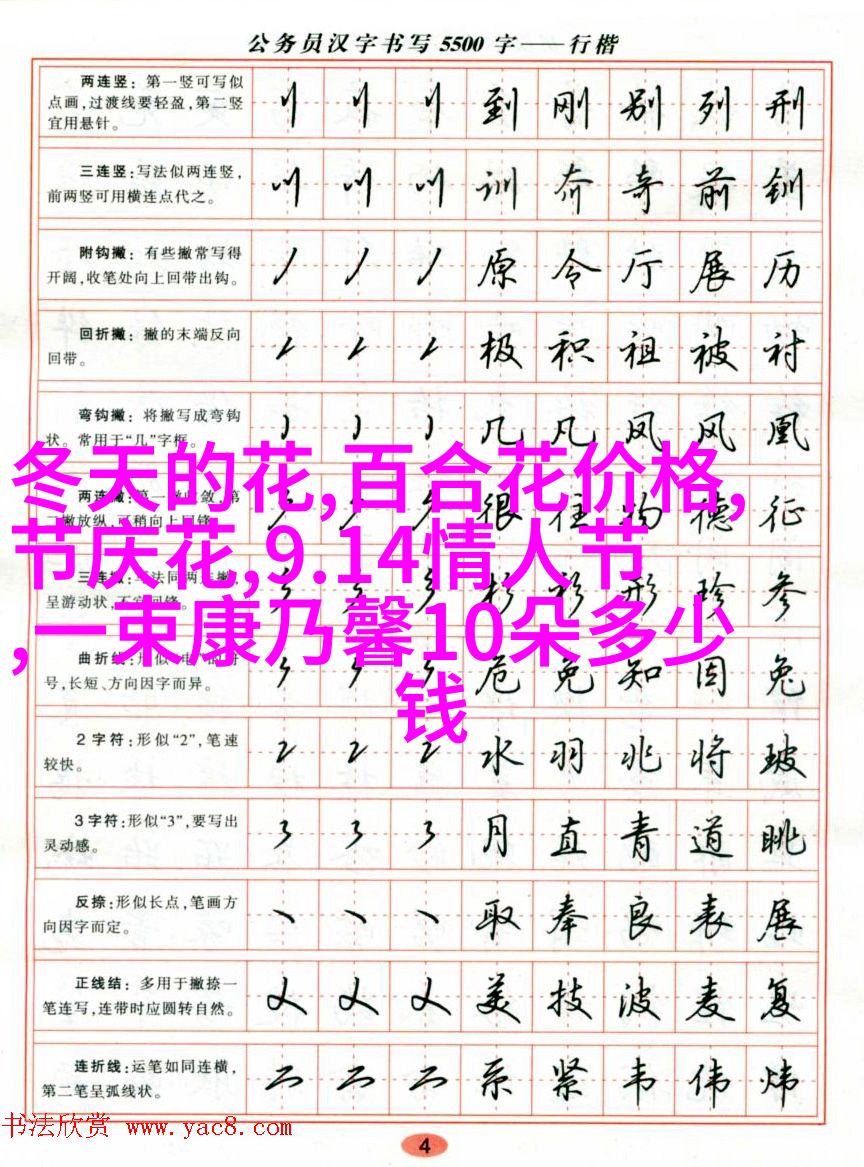 公务员汉字书写5500字——行楷
两连竖：第一竖可写似
点画，过渡线要轻盈，第二竖
宜用悬针。
到 刚 别 列 刑
三连竖：写法似两连竖，
前两竖可用横连点代之。
训 奔 奇 前 钏
附钩撇：有些撇常写得
开阔，收笔处向上回带出钩。
原 令 厅 展 历
回折撇：撇的末端反向
回带。
极 积 祖 被 衬
弯钩撇：将撇写成弯钩
状。常用于“几”字框。
几 凡 凤 风 凰
冬天的花,百合花价格,
节庆花,9.14情人节
,一束康乃馨10朵多少
钱
两连撇：第一
很 往 德 征
呈游动状，
形 珍 参
曲折线：形似
号，长短、方向因字而异。
危 免 知 因 兔
2字符：形似“2”，笔速
较快。
水 羽 兆 将 玻
3字符：形似“3”，要写出
灵动感。
月 直 青 道 眺
反捺：形似长点，笔画方
向因字而定。
取 奉 良 表 展
正线结：多用于撇捺一
笔连写，连带时应圆转自然。
美 技 波 麦 复
连折线：运笔如同连横，
第二笔呈弧线状。
系 紧 韦 伟 炜
书法欣赏 www.yac8.com
4